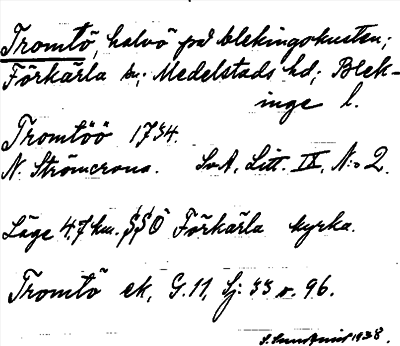 Tromtö, halvö på blekingekusten;
Förkärla sn; Medelstads hd; Blek-
inge l.
Tromtöö 1734.
N. Strömcrona. SvA, Litt. IX, N:o 2.
Läge 4,7 km. SSO Förkärla kyrka.
Tromtö ek, G. 11, Sj: 33 v. 96.
1938.